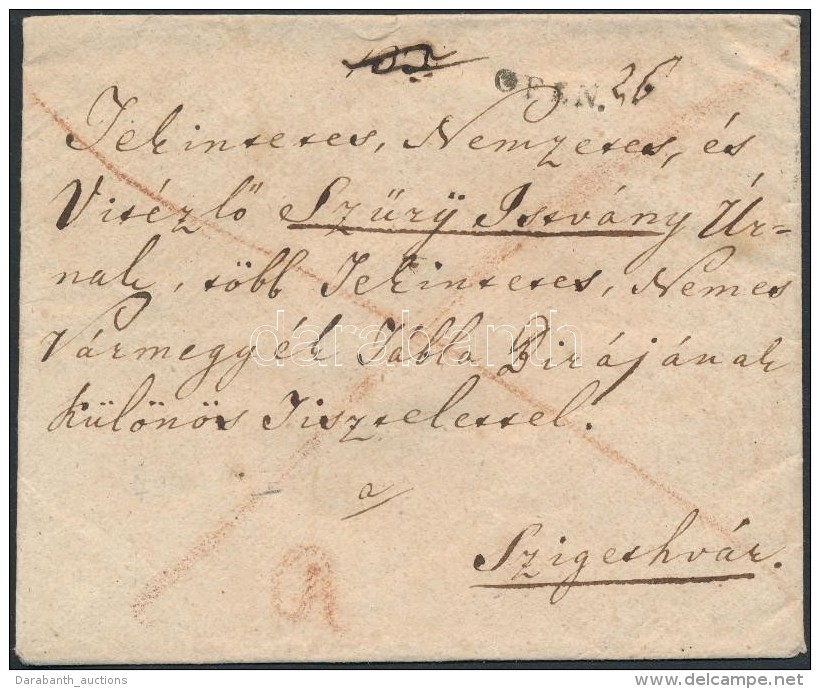 OFEN. 26
Tekintetes, Nemzetes, és
Vitézlő Szűrÿ István Úr=
nak, több Tekintetes, Nemes
Vármegyék Tábla Birájának
különös Tisztelettel.
a
Szigethvár.
darabanth
Darabanth_auctions
delcampe.net